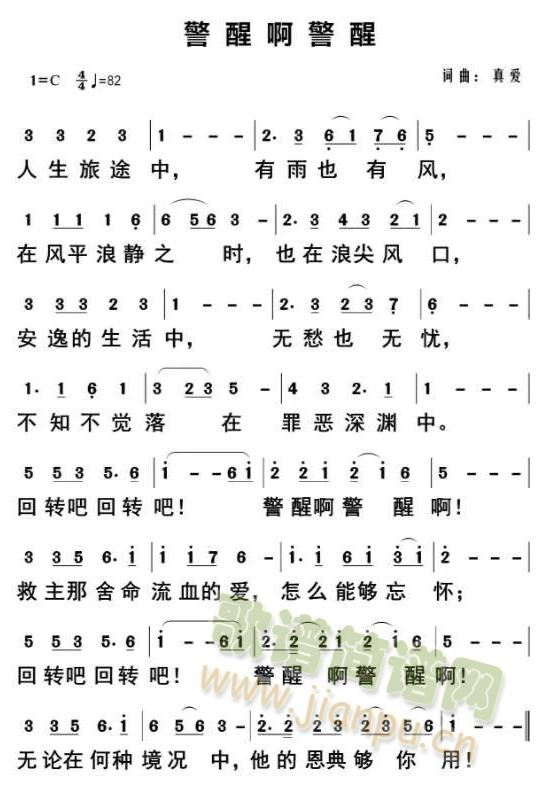 警醒啊警醒
1=C 4/4 ♩=82 词曲：真爱
3 3 2 3 | 1 - - - | 2· 3 6 1 7 6 | 5 - - - |
人生旅途中， 有雨也 有 风，
1 1 1 1 6 | 6 5 6 3 - | 2· 3 4 3 2 1 | 2 - - - |
在风平浪静之 时，也在浪尖风 口，
3 3 3 2 3 | 1 - - - | 2· 3 2 3 7 | 6 - - - |
安逸的生活中， 无愁也 无忧，
1· 1 6 1 | 3 2 3 5 - | 4 3 2· 1 | 1 - - - |
不知不觉落 在 罪恶深渊中。
5 5 3 5· 5 | 1 - - 6 1 | 2 2 1 2 1 6 | 5 - - - |
回转吧回转吧！ 警醒啊警 醒 啊！
3 3 5 6· 1 | 1 1 7 6 - | 1· 1 3 5 6 3 | 2 - - - |
救主那舍命流血的爱，怎么能够忘 怀；
5 5 3 5· 5 | 1 - - 6 1 | 2· 2 2 1 2 6 | 5 - - - |
回转吧回转吧！ 警醒 啊警 醒啊！
3 3 5 6· 1 | 6 5 6 3 - | 2· 2 2 3 2 3 5 6 | 1 - - - ‖
无论在何种境况 中，他的恩典够 你 用！
歌谱简谱网
www.jianpu.cn